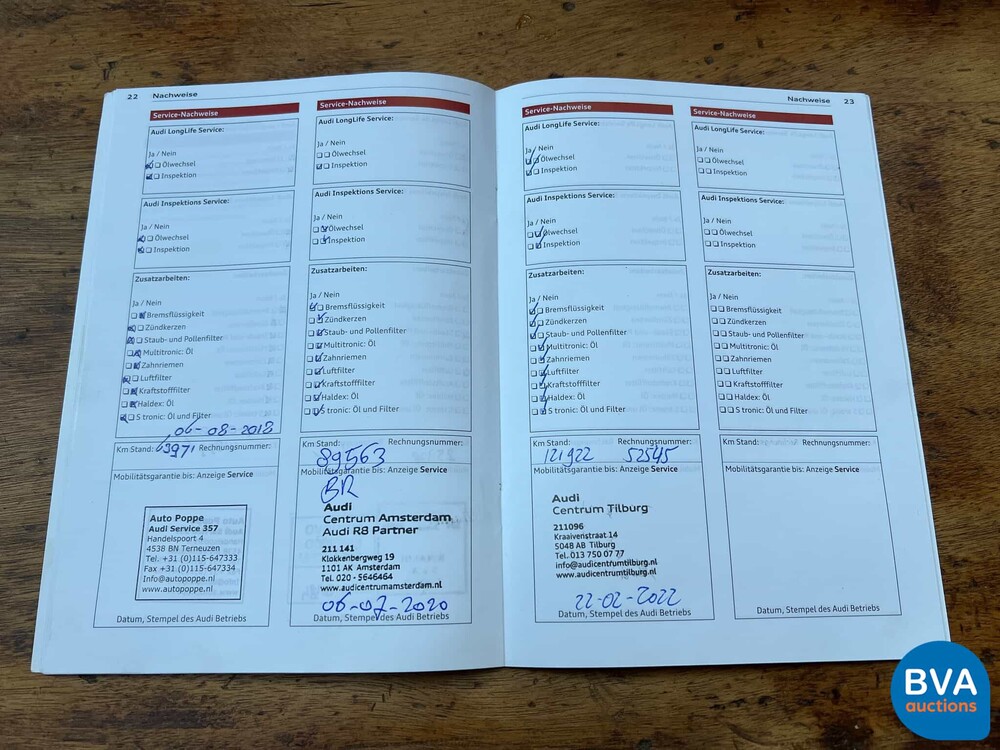 22 Nachweise
Service-Nachweise
Audi LongLife Service:
Ja / Nein
Ölwechsel
Inspektion
Audi Inspektions Service:
Ja / Nein
Ölwechsel
Inspektion
Zusatzarbeiten:
Ja / Nein
Bremsflüssigkeit
Zündkerzen
Staub- und Pollenfilter
Multitronic: Öl
Zahnriemen
Luftfilter
Kraftstofffilter
Haldex: Öl
S tronic: Öl und Filter
06-08-2018
Km Stand: Rechnungsnummer:
63971
Mobilitätsgarantie bis: Anzeige Service
Auto Poppe
Audi Service 357
Handelspoort 4
4538 BN Terneuzen
Tel. +31 (0)115-647333
Fax +31 (0)115-647334
Info@autopoppe.nl
www.autopoppe.nl
Datum, Stempel des Audi Betriebs
Service-Nachweise
Audi LongLife Service:
Ja / Nein
Ölwechsel
Inspektion
Audi Inspektions Service:
Ja / Nein
Ölwechsel
Inspektion
Zusatzarbeiten:
Ja / Nein
Bremsflüssigkeit
Zündkerzen
Staub- und Pollenfilter
Multitronic: Öl
Zahnriemen
Luftfilter
Kraftstofffilter
Haldex: Öl
S tronic: Öl und Filter
Km Stand: Rechnungsnummer:
89563
Mobilitätsgarantie bis: Anzeige Service
BR
Audi
Centrum Amsterdam
Audi R8 Partner
211 141
Klokkenbergweg 19
1101 AK Amsterdam
Tel. 020 - 5646464
www.audicentrumamsterdam.nl
06-07-2020
Datum, Stempel des Audi Betriebs
Nachweise 23
Service-Nachweise
Audi LongLife Service:
Ja / Nein
Ölwechsel
Inspektion
Audi Inspektions Service:
Ja / Nein
Ölwechsel
Inspektion
Zusatzarbeiten:
Ja / Nein
Bremsflüssigkeit
Zündkerzen
Staub- und Pollenfilter
Multitronic: Öl
Zahnriemen
Luftfilter
Kraftstofffilter
Haldex: Öl
S tronic: Öl und Filter
Km Stand: Rechnungsnummer:
121922 52545
Mobilitätsgarantie bis: Anzeige Service
Audi
Centrum Tilburg
211096
Kraaivenstraat 14
5048 AB Tilburg
Tel. 013 750 07 77
info@audicentrumtilburg.nl
www.audicentrumtilburg.nl
22-02-2022
Datum, Stempel des Audi Betriebs
Service-Nachweise
Audi LongLife Service:
Ja / Nein
Ölwechsel
Inspektion
Audi Inspektions Service:
Ja / Nein
Ölwechsel
Inspektion
Zusatzarbeiten:
Ja / Nein
Bremsflüssigkeit
Zündkerzen
Staub- und Pollenfilter
Multitronic: Öl
Zahnriemen
Luftfilter
Kraftstofffilter
Haldex: Öl
S tronic: Öl und Filter
Km Stand: Rechnungsnummer:
Mobilitätsgarantie bis: Anzeige Service
Datum, Stempel des Audi Betriebs
BVA
auctions